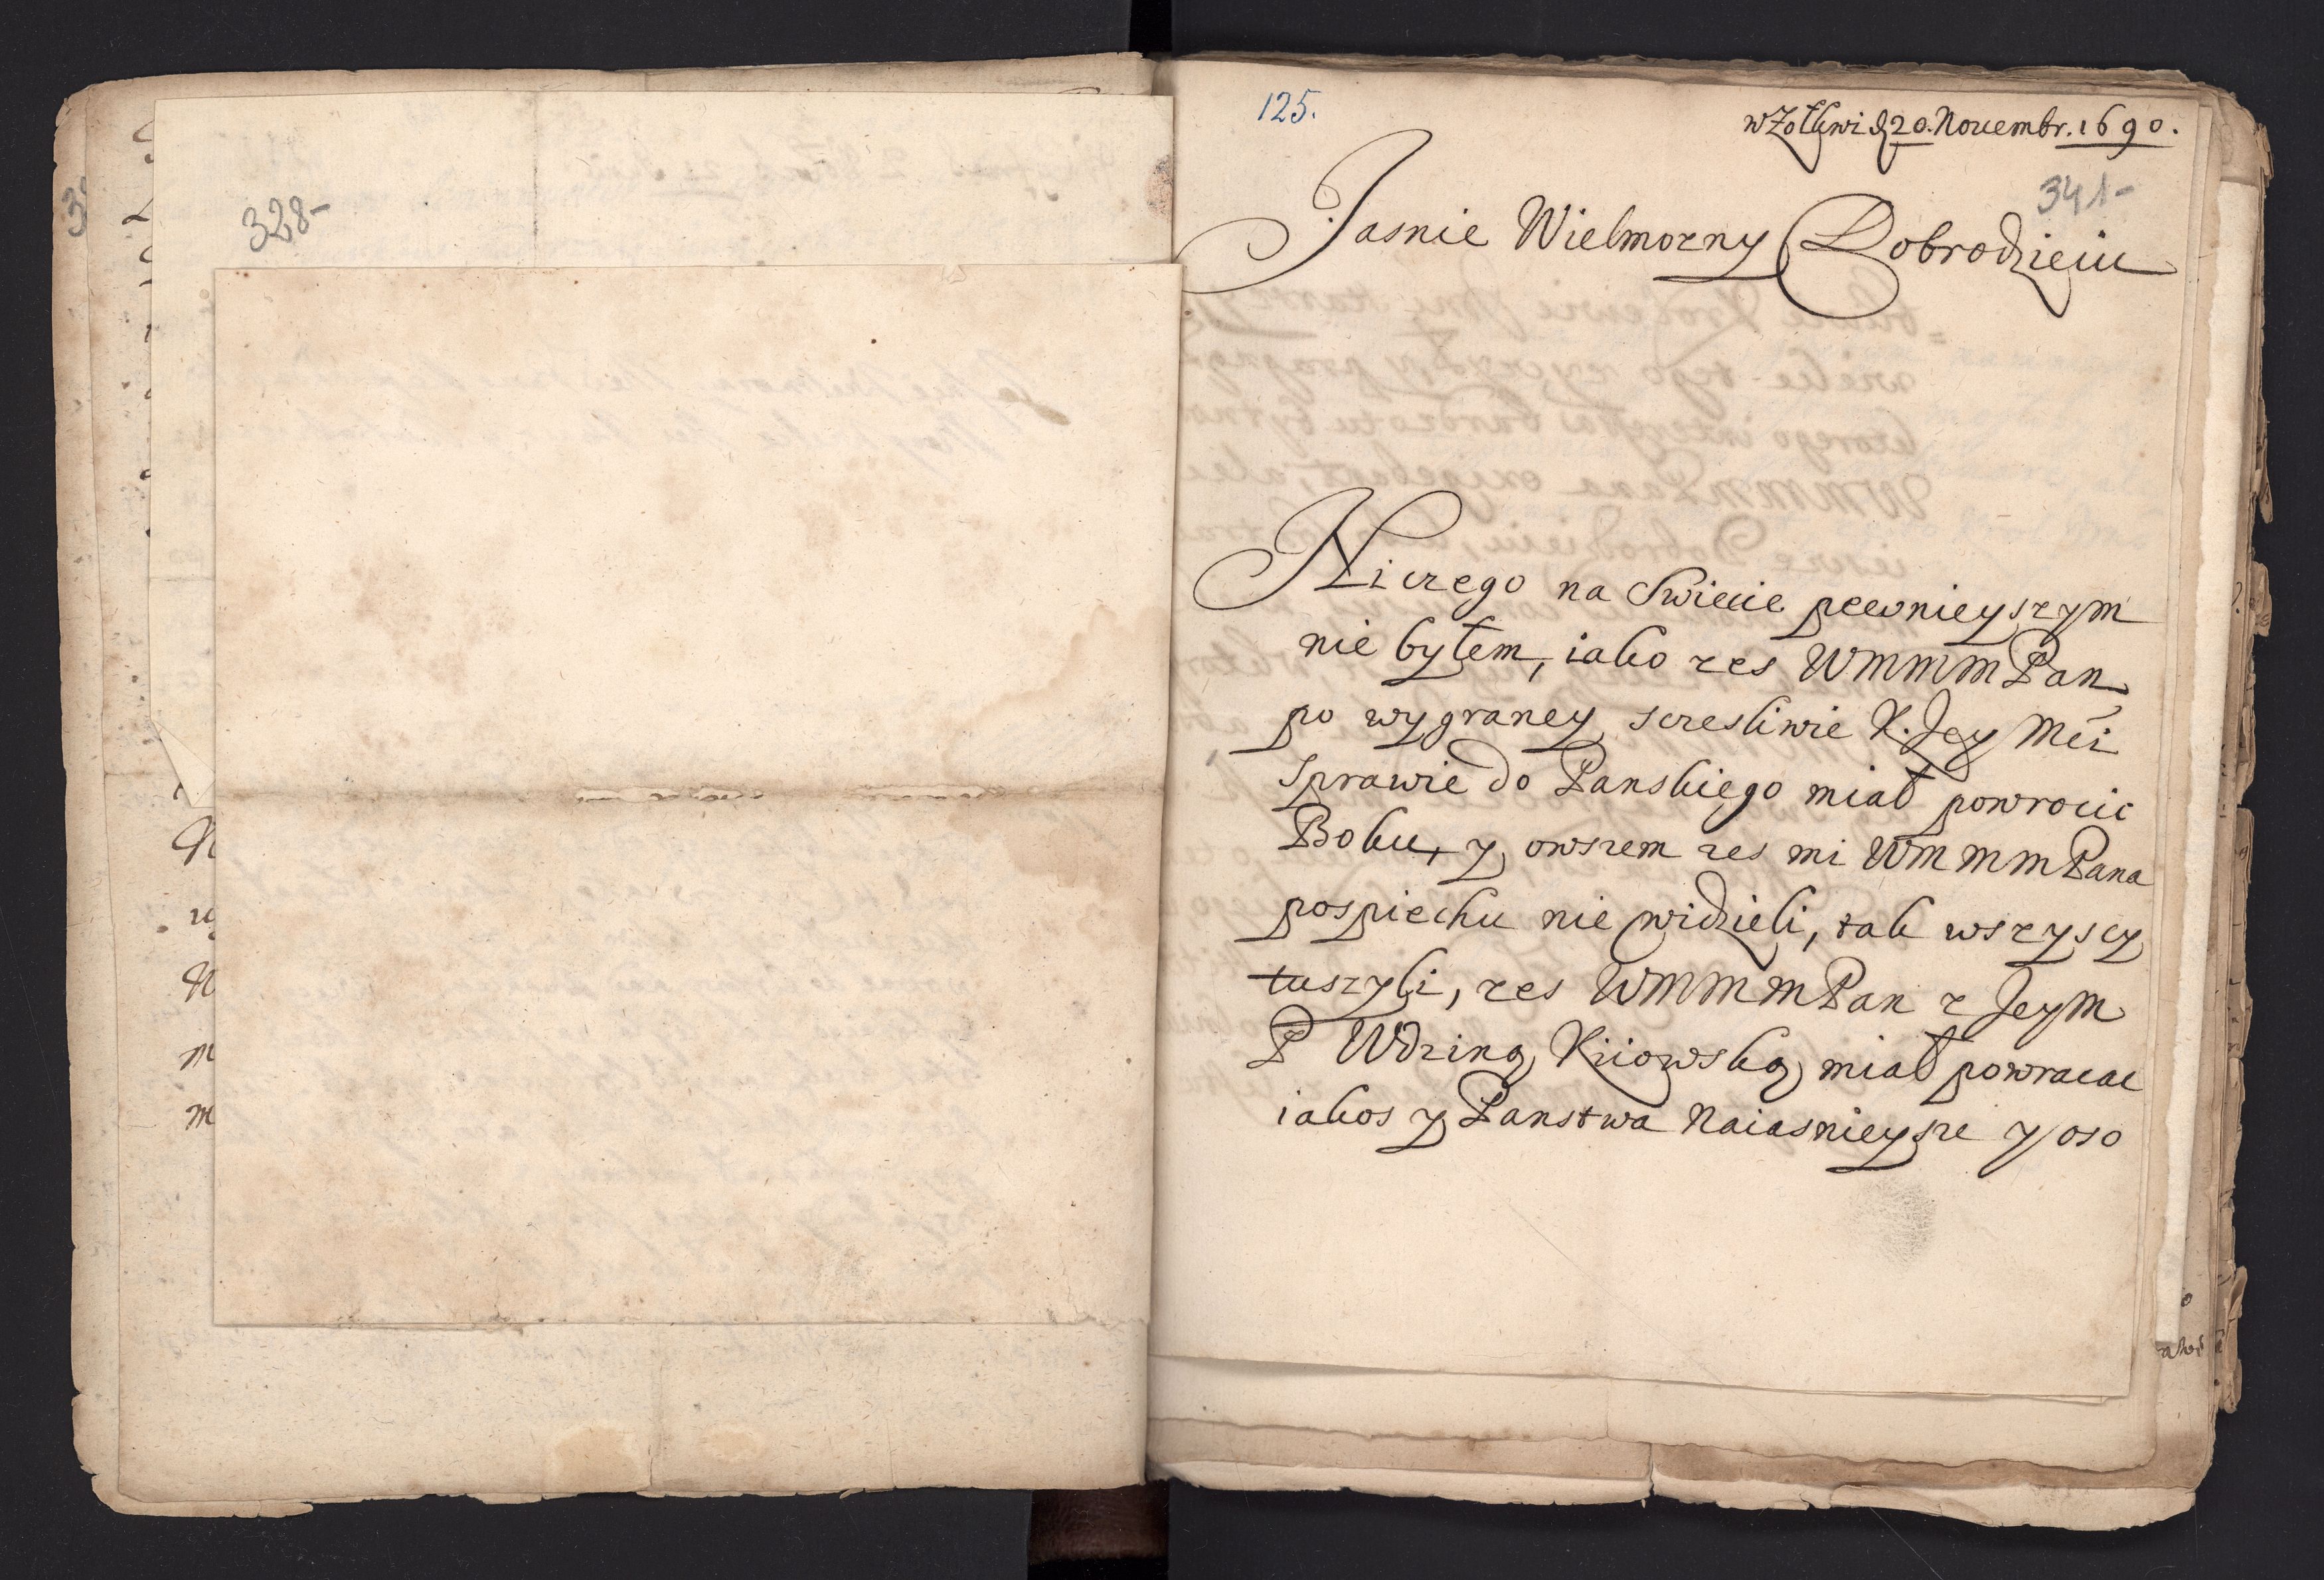 328-
125.
w Zołkwi d 20. Nouembr. 1690.
341-
Jasnie Wielmozny Dobrodzieiu
Niczego na Swiecie pewnieyszym
nie byłem, iako zes WMMM Pan
po wygraney sczesliwie K. Jey Mći
sprawie do Panskiego miał powrocic
Boku, y owszem zes mi WMMM Pana
pospiechu nie widzieli, tak wszyscy
tuszyli, zes WMMM Pan z JeyM
P Wdziną Kiiowską miał powracac
iakos y Panstwa Naiasnieysze y oso